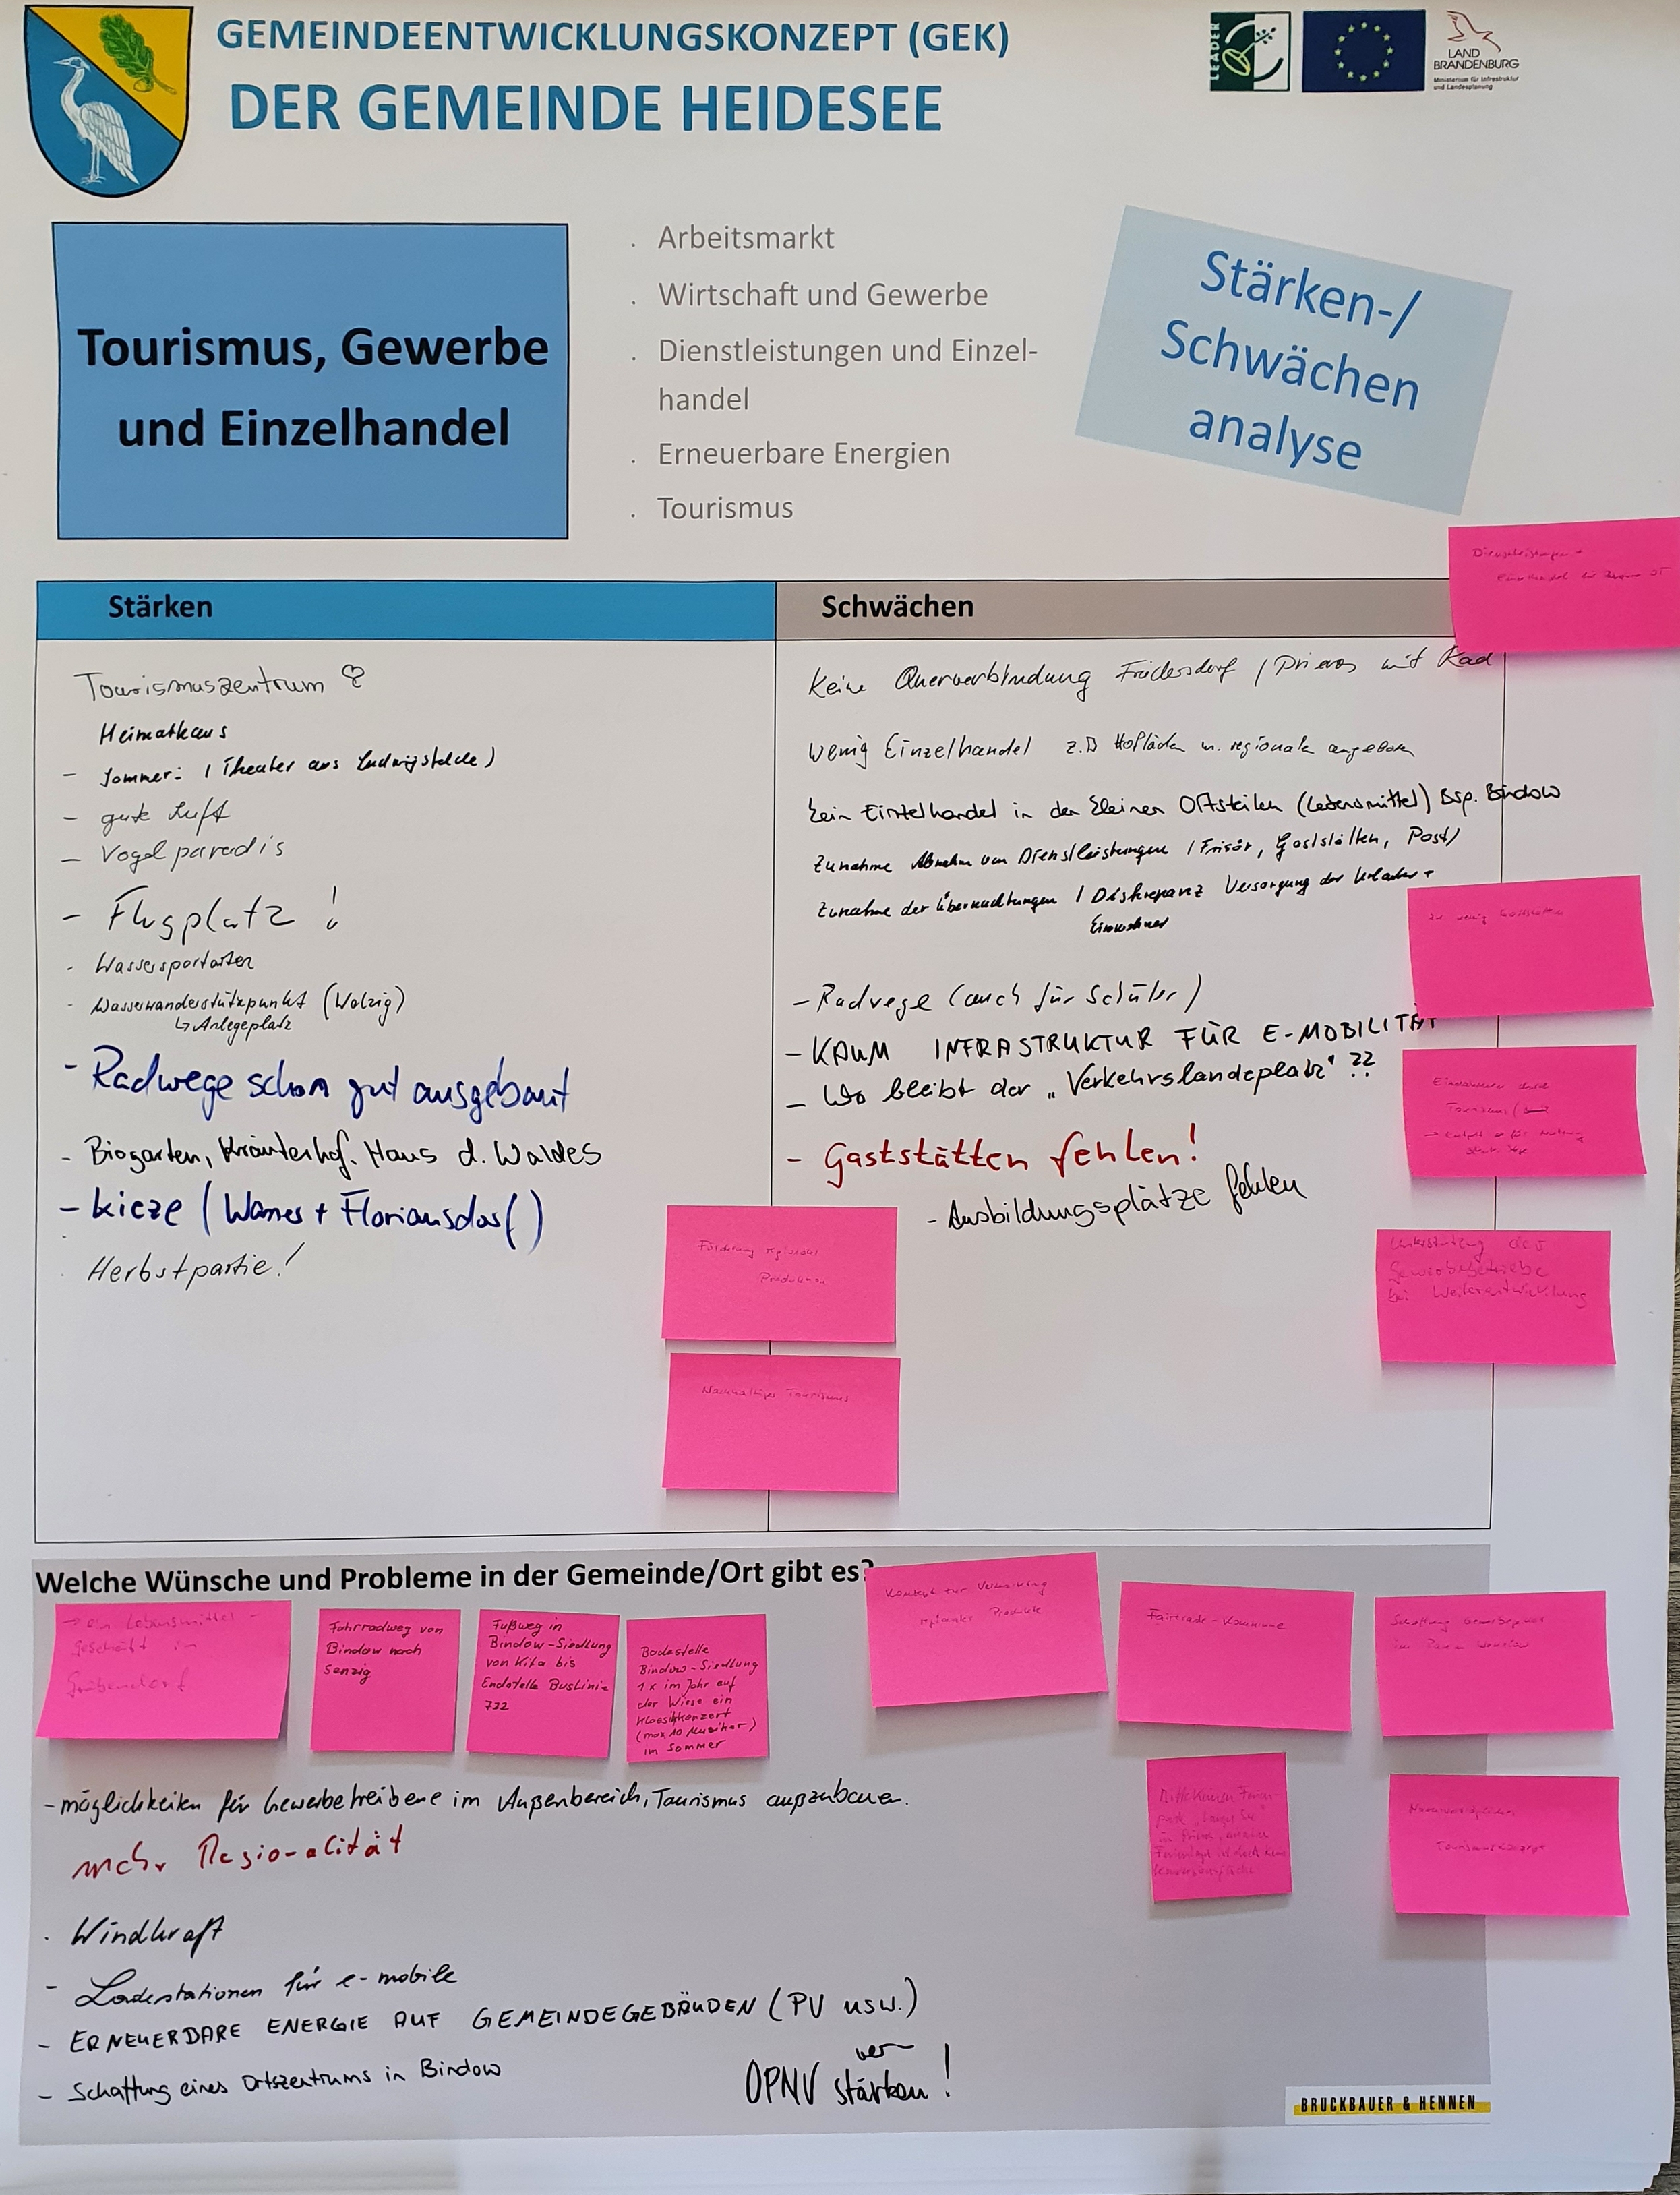 GEMEINDEENTWICKLUNGSKONZEPT (GEK)
DER GEMEINDE HEIDESEE
LEADER
LAND
BRANDENBURG
Ministerium für Infrastruktur
und Landesplanung
Tourismus, Gewerbe
und Einzelhandel
. Arbeitsmarkt
. Wirtschaft und Gewerbe
. Dienstleistungen und Einzel-
handel
. Erneuerbare Energien
. Tourismus
Stärken-/
Schwächen
analyse
Stärken
Tourismuszentrum
Heimathaus
- Sommer: (Theater aus Ludwigsfelde)
- gute Luft
- Vogelparadis
- Flugplatz !
- Wassersportarten
- Wasserwanderstützpunkt (Wolzig)
↳ Anlegeplatz
- Radwege schon gut ausgebaut
- Biogarten, Kräuterhof, Haus d. Waldes
- Kieze ( + Floriansdorf)
Herbstpartie!
Förderung regionaler
Nachhaltiger Tourismus
Schwächen
Keine Querverbindung Friedersdorf / Prieros mit Rad
wenig Einzelhandel z.B Hofläden m. regionale angeboten
kein Einzelhandel in den kleinen Ortsteilen (Lebensmittel) Bsp. Bindow
Zunahme Abnahme von Dienstleistungen (Frisör, Gaststätten, Post)
Zunahme der Übernachtungen / Diskrepanz Versorgung der Urlauber +
Einwohner
- Radwege (auch für Schüler)
- KAUM INFRASTRUKTUR FÜR E-MOBILITÄT
- Wo bleibt der „Verkehrslandeplatz" ??
- Gaststätten fehlen!
- Ausbildungsplätze fehlen
Dienstleistungen +
zu wenig Gaststätten
Tourismus
Unterstützung der
Gewerbebetriebe
bei Weiterentwicklung
Welche Wünsche und Probleme in der Gemeinde/Ort gibt es?
→ ein Lebensmittel-
geschäft in
Gräbendorf
Fahrradweg von
Bindow nach
Senzig
Fußweg in
Bindow-Siedlung
von Kita bis
Endstelle BusLinie
722
Badestelle
Bindow-Siedlung
1 x im Jahr auf
der Wiese ein
Klassikkonzert
(max. 10 Musiker)
im Sommer
Konzept zur Vermarktung
regionaler Produkte
Fairtrade-Kommune
Schaffung Gewerbe
Bitte keinen
Tourismuskonzept
- möglichkeiten für Gewerbetreibene im Außenbereich, Tourismus außzubauen.
mehr Regionalität
. Windkraft
- Ladestationen für e-mobile
- ERNEUERBARE ENERGIE AUF GEMEINDEGEBÄUDEN (PV usw.)
- Schaffung eines Ortszentrums in Bindow
ver-
ÖPNV stärken !
BRUCKBAUER & HENNEN